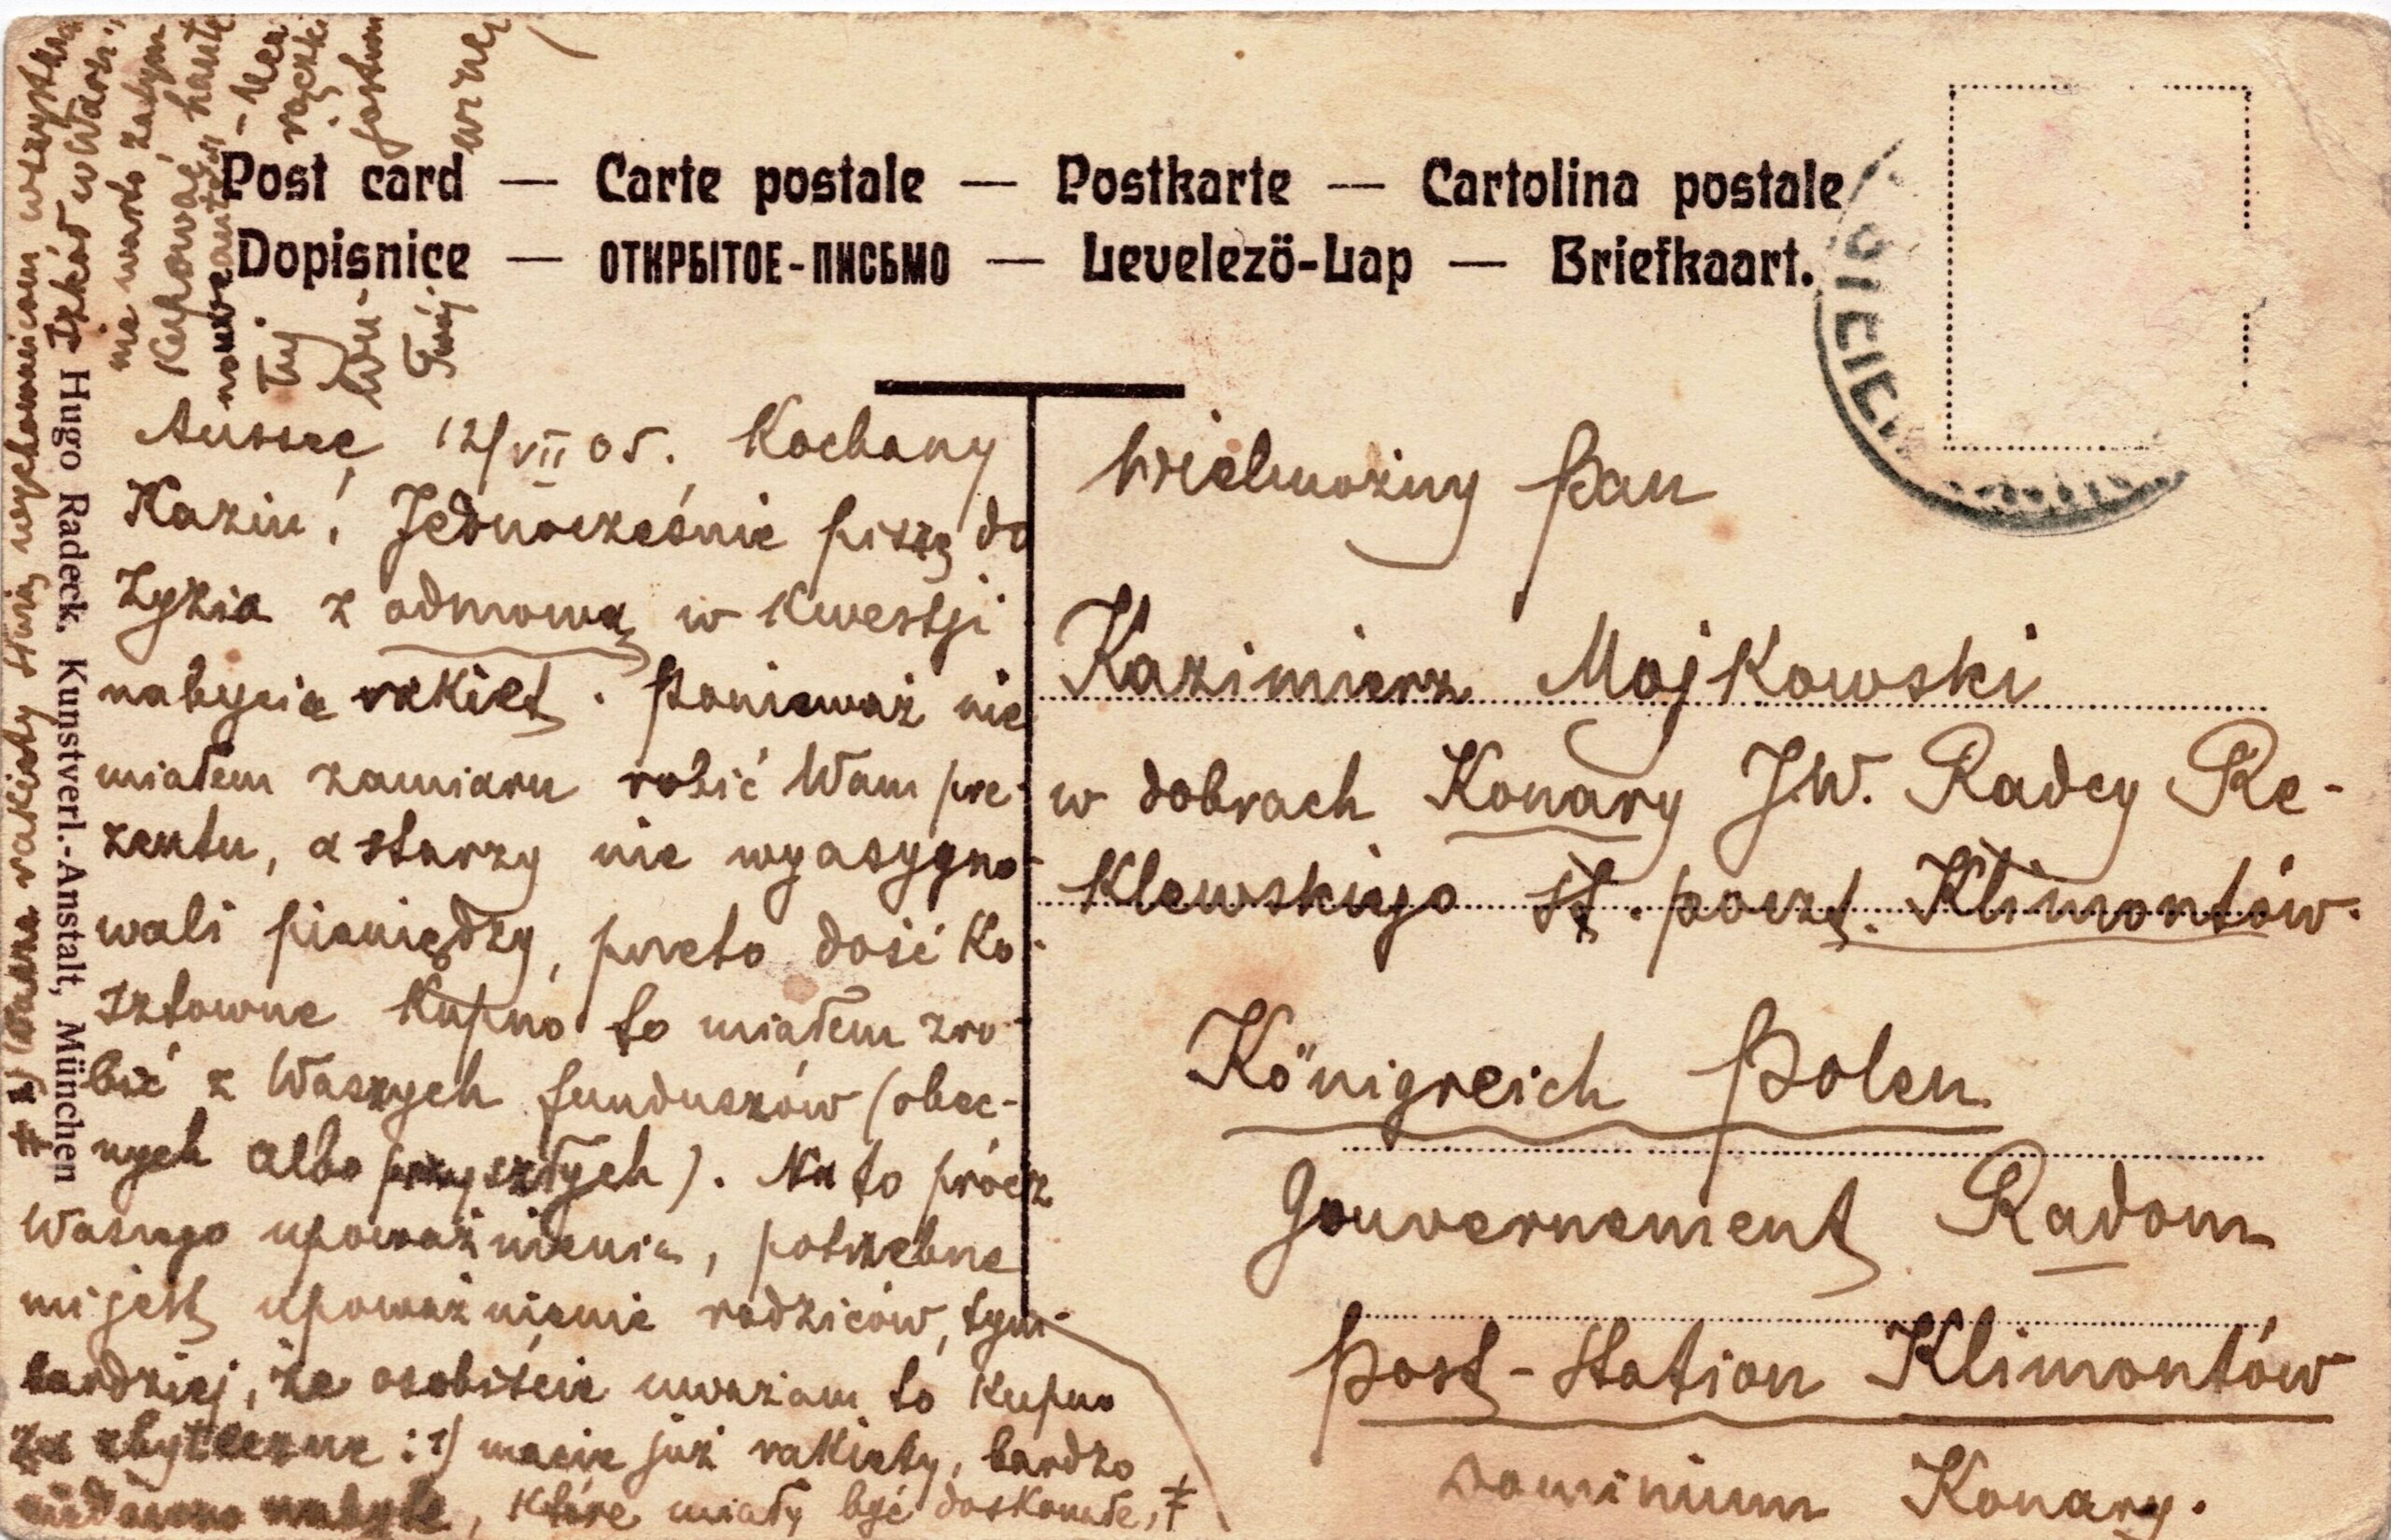 Post card — Carte postale — Postkarte — Cartolina postale
Dopisnice — ОТКРЫТОЕ-ПИСЬМО — Levelező-Lap — Briefkaart.
Aussee 12/VII 05. Kochany
Kaziu! Jednocześnie piszę do
Zyzia z odmową w kwestji
nabycia rakiet. Ponieważ nie
miałem zamiaru robić Wam pre-
zentu, a starzy nie wyasygno-
wali pieniędzy, przeto dość ko-
sztowne kupno to miałem zro-
bić z Waszych funduszów (obec-
nych albo przyszłych). Na to prócz
Waszego upoważnienia, potrzebne
mi jest upoważnienie rodziców, tym-
bardziej, że osobiście uważam to kupno
za zbyteczne: 1) macie już rakiety, bardzo
niedawno nabyte, które miały być doskonałe, ≠
≠ 2) Wasze rakiety służą wychowańcom wszystkich
szkół w Warsz.,
nie warto zatym
kupować
nowe
Twój
Wielmożny Pan
Kazimierz Mojkowski
w dobrach Konary J.W. Radcy Re-
klewskiego st. poczt. Klimontów.
Königreich Polen
Gouvernement Radom
Post-Station Klimontów
Dominium Konary.
Hugo Radeck, Kunstverl.-Anstalt, München